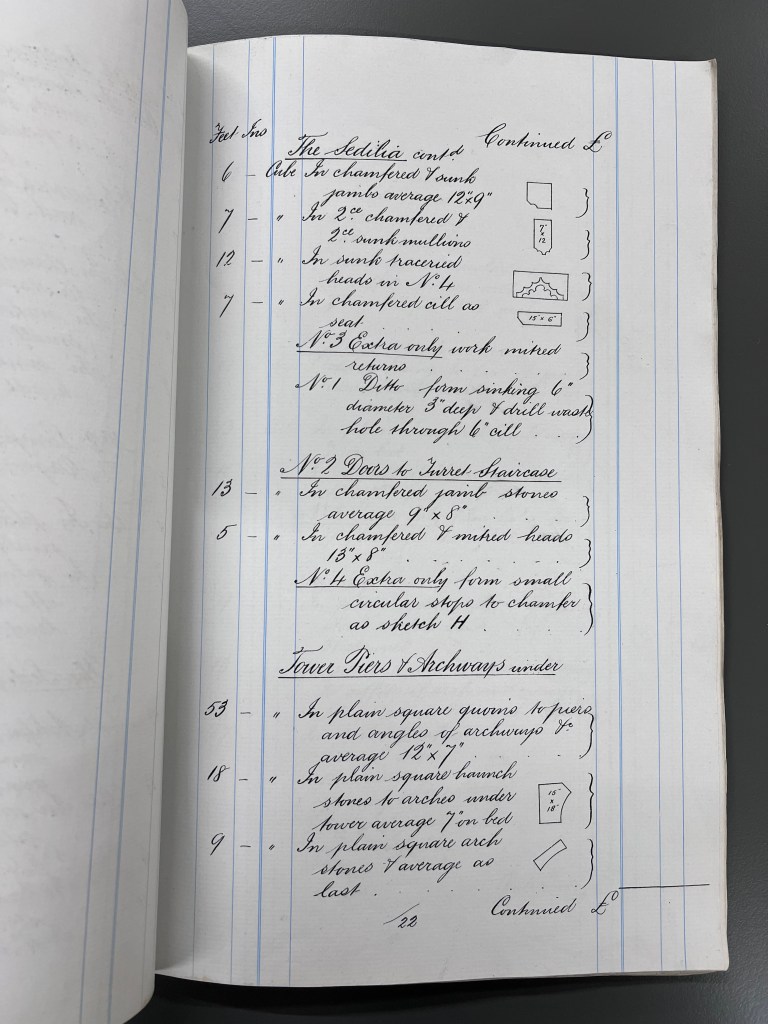 Feet Ins
Continued £
The Sedilia contd
6 — Cube In chamfered & sunk
jambs average 12"x9"
7 — " In 2ce chamfered &
2ce sunk mullions
7" x 12
12 — " In sunk traceried
heads in No. 4
7 — " In chamfered cill as
seat
15" x 6"
No. 3 Extra only work mitred
returns
No. 1 Ditto form sinking 6"
diameter 3" deep & drill waste
hole through 6" cill
No. 2 Doors to Turret Staircase
13 — " In chamfered jamb stones
average 9" x 8"
5 — " In chamfered & mitred heads
13" x 8"
No. 4 Extra only form small
circular stops to chamfer
as sketch H
Tower Piers & Archways under
53 — " In plain square quoins to piers
and angles of archways &c
average 12" x 7"
18 — " In plain square haunch
stones to arches under
tower average 7" on bed
15" x 18"
9 — " In plain square arch
stones & average as
last
Continued £
/22